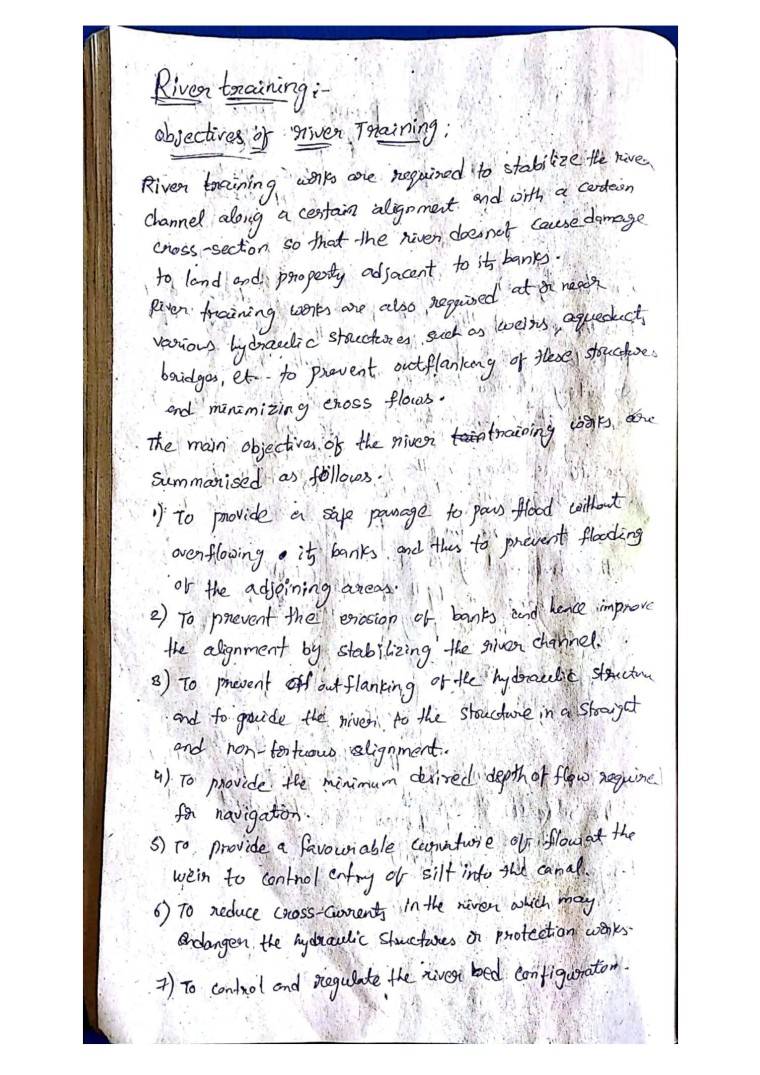 River training :-
Objectives of river Training :
River training works are required to stabilize the river
channel along a certain alignment and with a certain
cross-section so that the river doesnot cause damage
to land and property adjacent to its banks.
River training works are also required at or near
various hydraulic structures, such as weirs, aqueducts
bridges, et.. to prevent outflanking of these structures
and minimizing cross flows.
The main objectives of the river training works, are
summarised as follows.
1) To provide a safe passage to pass flood without
overflowing its banks and thus to prevent flooding
of the adjoining areas.
2) To prevent the erosion of banks and hence improve
the alignment by stabilizing the river channel.
3) To prevent outflanking of the hydraulic structure
and to guide the river to the structure in a straight
and non-tortuous alignment.
4) To provide the minimum desired depth of flow require
for navigation.
5) To provide a favouriable curvature of flow at the
weir to control entry of silt into the canal.
6) To reduce cross-currents in the river which may
endanger the hydraulic structures or protection works.
7) To control and regulate the river bed configuration.